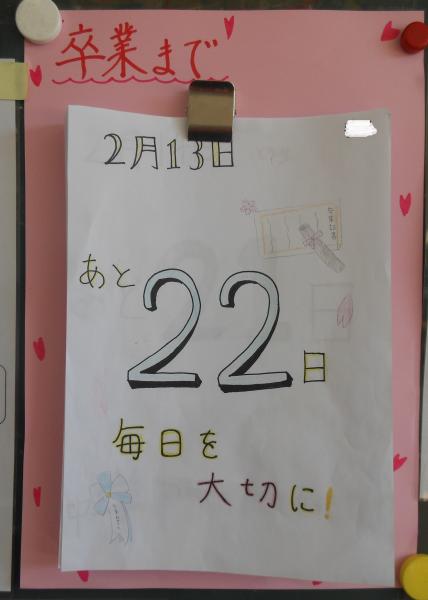 卒業まで
2月13日
卒業証書
あと
22日
毎日を
大切に!